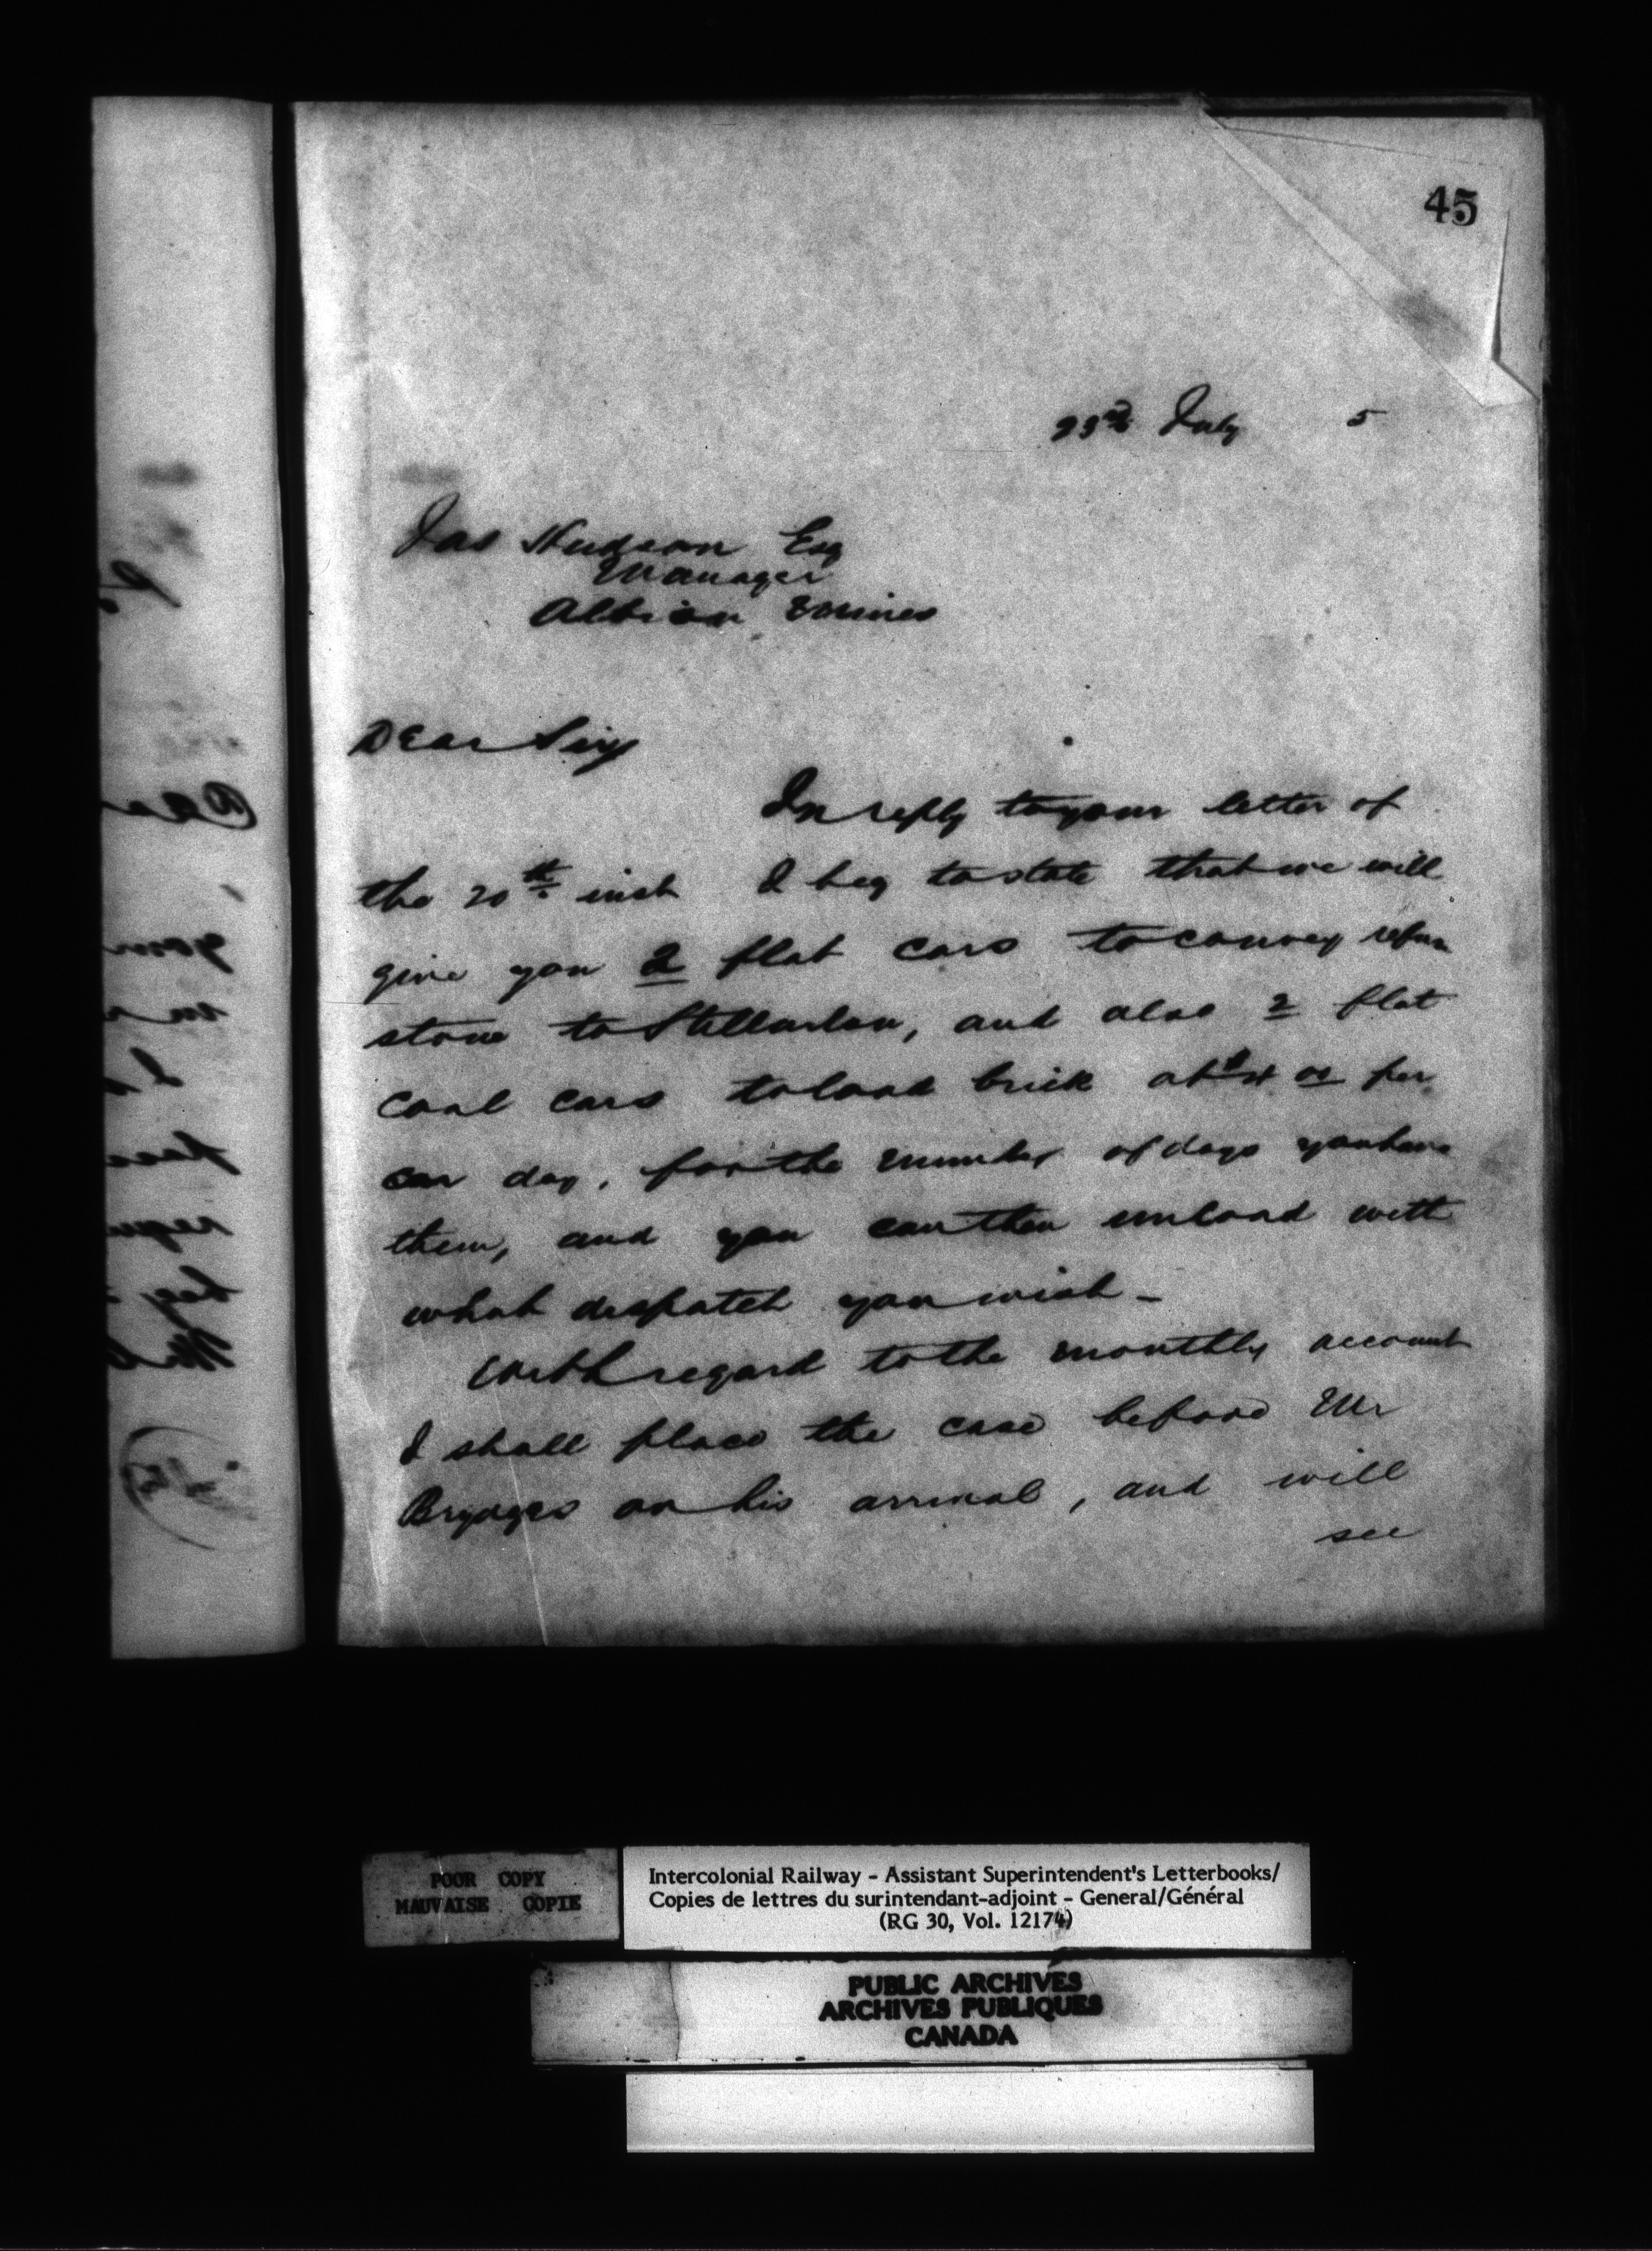 45
23rd July 5
Jas Hudson Esq
Manager
Albion Mines
Dear Sir
In reply to your letter of
the 20th inst I beg to state that we will
give you 2 flat cars to convey
stone to Stellarton, and also 2 flat
coal cars to load brick at per
car day, for the number of days you have
them, and you can then unload with
what despatch you wish -
With regard to the monthly account
I shall place the case before Mr
Brydges on his arrival, and will
see
POOR COPY
MAUVAISE COPIE
Intercolonial Railway - Assistant Superintendent's Letterbooks/
Copies de lettres du surintendant-adjoint - General/Général
(RG 30, Vol. 12174)
PUBLIC ARCHIVES
ARCHIVES PUBLIQUES
CANADA